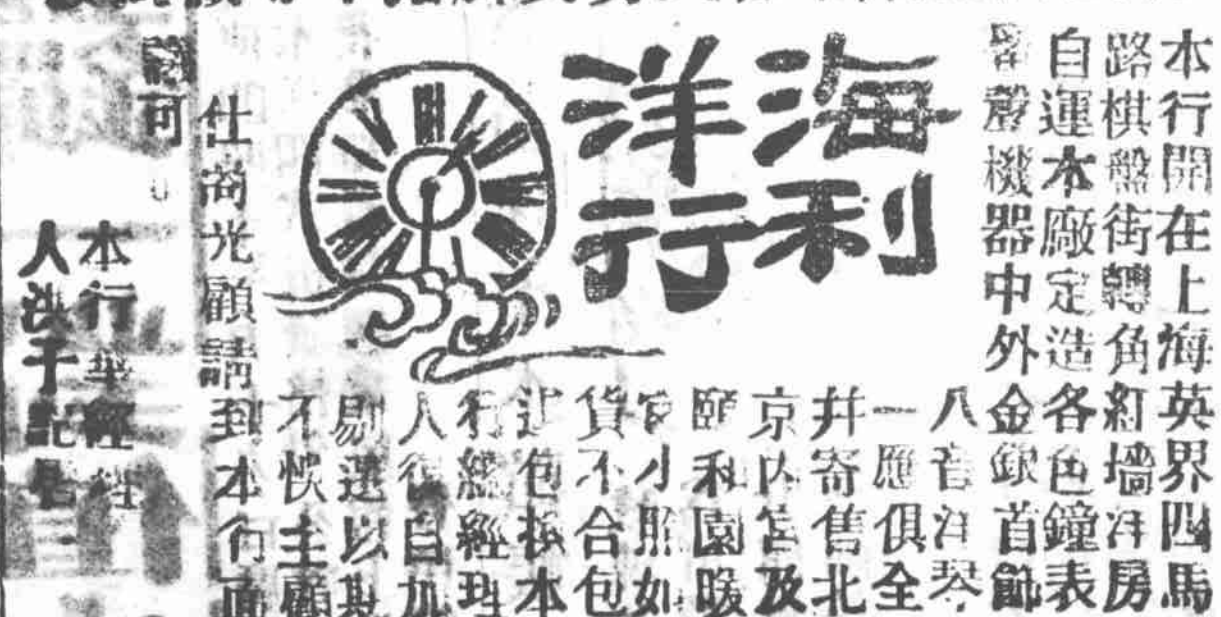 海利
洋行
本行開在上海英界四馬
路棋盤街轉角紅墻洋房
自運本廠定造各色鐘表
聲機器中外金銀首飾
八音洋琴
一應俱全
并寄售北
京内宫及
頤和園暖
小照如
貨不合包
包換本
行總經理
人復自加
剔選以期
不悞主顧
仕商光顧請到本行面
可
本行華經
人洪千記